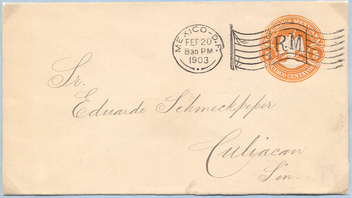 MEXICO-D.F.
FEB 20
8³⁰ PM
1903
R.M.
Sr.
Eduardo Schmeckpeper
Culiacan
Sin.